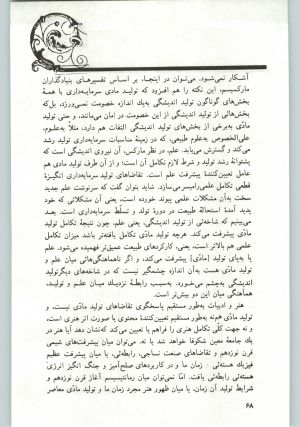 آشکار نمی‌شود. می‌توان در اینجا، بر اساس تفسیرهای بنیادگذاران
مارکسیسم، این نکته را هم افزود که تولید مادی سرمایه‌داری با همهٔ
بخش‌های گوناگون تولید اندیشگی به‌یک اندازه خصومت نمی‌ورزد، بل‌که
بخش‌هائی از تولید اندیشگی از این خصومت در امان می‌مانند، و حتی تولید
مادّی به‌برخی از بخش‌های تولید اندیشگی التفات هم دارد، مثلاً به‌علوم.
علی‌الخصوص به‌علوم طبیعی، که در زمینهٔ مناسبات سرمایه‌داری تولید رشد
می‌کند و گسترش می‌یابد. علم، در نظر مارکس، آن نیروی اندیشگی است که
پشتوانهٔ رشد تولید و شرط لازم تکامل آن است؛ و از آن طرف تولید مادی هم
عامل تعیین‌کنندهٔ پیشرفت علم است. تقاضاهای تولید سرمایه‌داری انگیزهٔ
قطعی تکامل علمی‌رامیسر می‌سازد. شاید بتوان گفت که سرنوشت علم جدید
سخت به‌آن مشکلات علمی پیوند خورده است، یعنی آن مشکلاتی که خود
پدید آمدهٔ استحالهٔ طبیعت در دورهٔ تولد و تسلّط سرمایه‌داری است. بعد
می‌بینیم که شاخه‌ئی از تولید اندیشگی، یعنی علم، چون نتیجهٔ تکامل تولید
مادّی پیشرفت می‌کند. هرچه تولید مادّی تکامل یافته‌تر باشد میزان تکامل
علمی هم بالاتر است، یعنی، کارکردهای طبیعت عمیق‌تر فهمیده می‌شود. علم
پا به‌پای تولید [مادّی] پیشرفت می‌کند، و اگر ناهماهنگی‌هائی میان علم و
تولید مادّی هست به‌آن اندازه چشمگیر نیست که در شاخه‌های دیگرتولید
اندیشگی به‌چشم می‌خورد. به‌سبب رابطهٔ نزدیک میان علم و تولید،
هماهنگی میان این دو بیش‌تر است.
هنر و ادبیات به‌طور مستقیم پاسخگوی تقاضاهای تولید مادّی نیست، و
تولید مادّی هم‌نه به‌طور مستقیم تعیین‌کنندهٔ محتوی یا صورت اثر هنری است،
و نه جهت کلّی تکامل هنری را فراهم یا تعیین می‌کند که‌نشان دهد آیا هنر در
یك جامعهٔ معین شکوفا خواهد شد یا نه. می‌توان میان پیشرفت‌های شیمی
قرن نوزدهم و تقاضاهای صنعت نساجی، رابطه‌ئی، یا میان پیشرفت عظیم
فیزیك هسته‌ئی - زمان ما و در کاربردهای صلح‌آمیز و جنگ انگیز انرژی
هسته‌ئی رابطه‌ئی یافت. امّا نمی‌توان میان رمانتیسیسم آغاز قرن نوزدهم و
شرایط تولید آن زمان، یا میان ظهور هنر مجرد زمان ما و تولید مادّی معاصر
۶۸